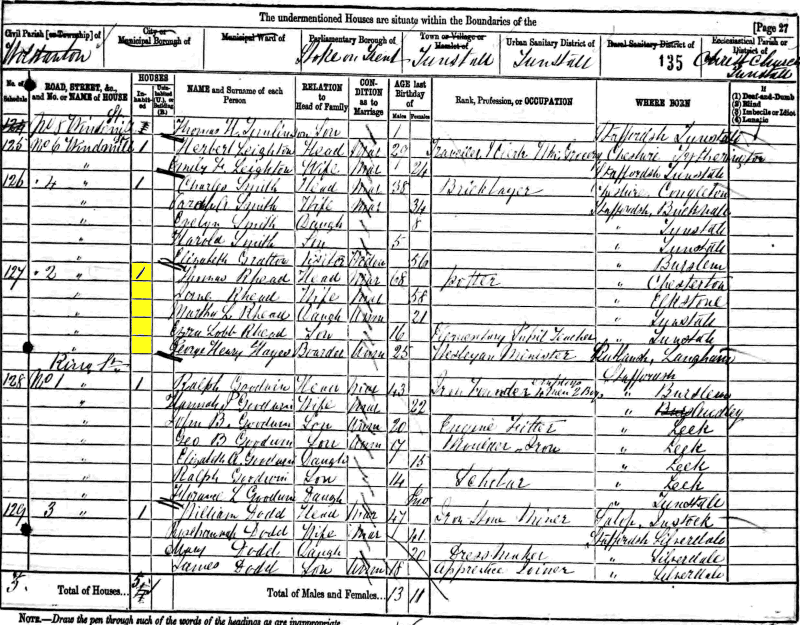 The undermentioned Houses are situate within the Boundaries of the
[Page 27
Civil Parish [or Township] of
City or Municipal Borough of
Municipal Ward of
Parliamentary Borough of
Town or Village or Hamlet of
Urban Sanitary District of
Rural Sanitary District of
Ecclesiastical Parish or District of
Wolstanton
Stoke on Trent
Tunstall
Tunstall
135
Christ Church Tunstall
No. of Schedule
ROAD, STREET, &c., and No. or NAME of HOUSE
HOUSES
Inhabited
Uninhabited (U.), or Building (B.)
NAME and Surname of each Person
RELATION to Head of Family
CONDITION as to Marriage
AGE last Birthday of
Males
Females
Rank, Profession, or OCCUPATION
WHERE BORN
If
(1) Deaf-and-Dumb
(2) Blind
(3) Imbecile or Idiot
(4) Lunatic
Son 1 Staffordsh Tunstall
125 No 6 Windmill 1 Herbert Leighton Head Mar 29 Traveller Cheshire
" Emily F. Leighton Wife Mar 24 Staffordsh Tunstall
126 " 4 " 1 Charles Smith Head Mar 38 Bricklayer Cheshire Congleton
" Smith Wife Mar 34 Staffordsh
" Evelyn Smith Daugh 8 " Tunstall
" Harold Smith Son 5 " Tunstall
" Elizabeth Gratton Visitor Widow 56 " Burslem
127 " 2 " 1 Thomas Rhead Head Mar 68 Potter " Chesterton
" Rhead Wife Mar 58 " Elkstone
" Martha L Rhead Daugh Unm 21 " Tunstall
" Ezra Lobb Rhead Son 16 Elementary Pupil Teacher " Tunstall
" George Henry Hayes Boarder Unm 25 Wesleyan Minister Rutlandsh, Langham
King St
128 No 1 " 1 Ralph Goodwin Head Mar 43 Iron Founder employs 4 Men 2 Boys Staffordsh " Burslem
" Hannah P Goodwin Wife Mar 22 "
" John B. Goodwin Son Unm 20 Engine Fitter " Leek
" Geo B Goodwin Son Unm 17 Moulder Iron " Leek
" Elizabeth A Goodwin Daugh 15 " Leek
" Ralph Goodwin Son 14 Scholar " Leek
" Florence L Goodwin Daugh " Tunstall
129 3 " 1 William Dodd Head Mar 47 Iron Stone Miner Salop,
" Dodd Wife Mar 41 Staffordsh Silverdale
" Mary Dodd Daugh 20 Dressmaker " Silverdale
" James Dodd Son Unm 18 Apprentice Joiner " Silverdale
5 Total of Houses... 5
Total of Males and Females... 13 11
NOTE.—Draw the pen through such of the words of the headings as are inappropriate.